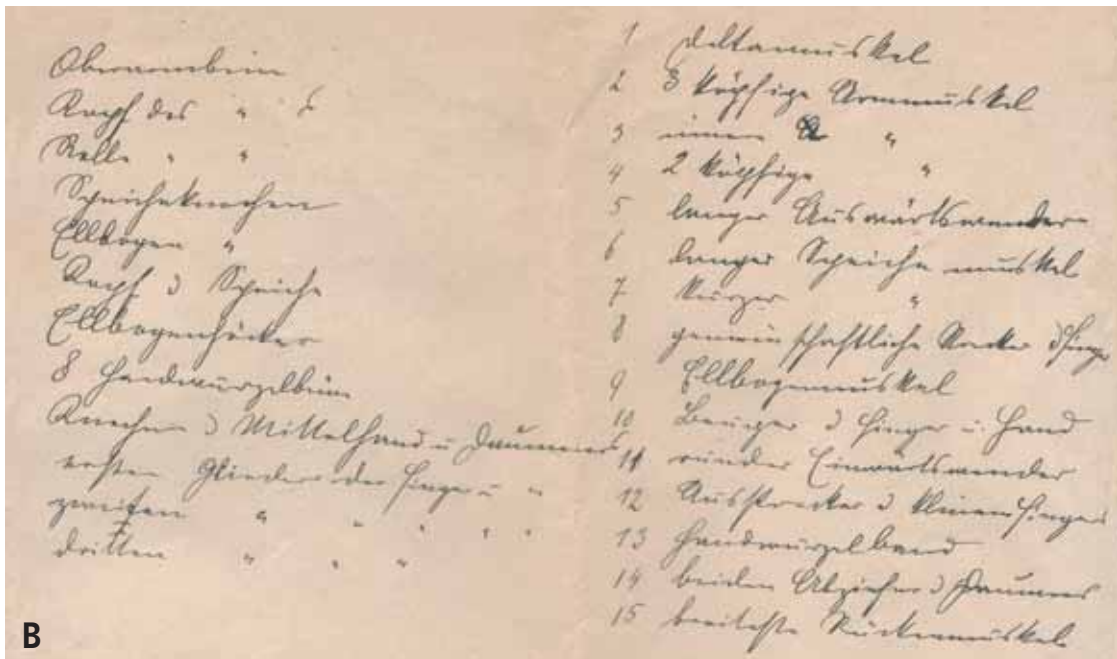 Oberarmbein
Kopf des " s
Rolle " "
Speichenknochen
Ellbogen "
Kopf d Speiche
Ellbogenhöcker
8 Handwurzelbeine
Knochen d Mittelhand u Daumens
ersten Glieder der Finger u "
zweiten " " " " "
dritten " " "
1 Deltamuskel
2 3 köpfige Armmuskel
3 innere "
4 2 köpfige "
5 langer Auswärtswender
6 langer Speichenmuskel
7 kurzer "
8 gemeinschaftliche Strecker d Finger
9 Ellbogenmuskel
10 Beuger d Finger u. Hand
11 runder Einwärtswender
12 Ausstrecker d kleinen Fingers
13 Handwurzelband
14 beiden Abzieher d Daumens
15 breiteste Rückenmuskel
B